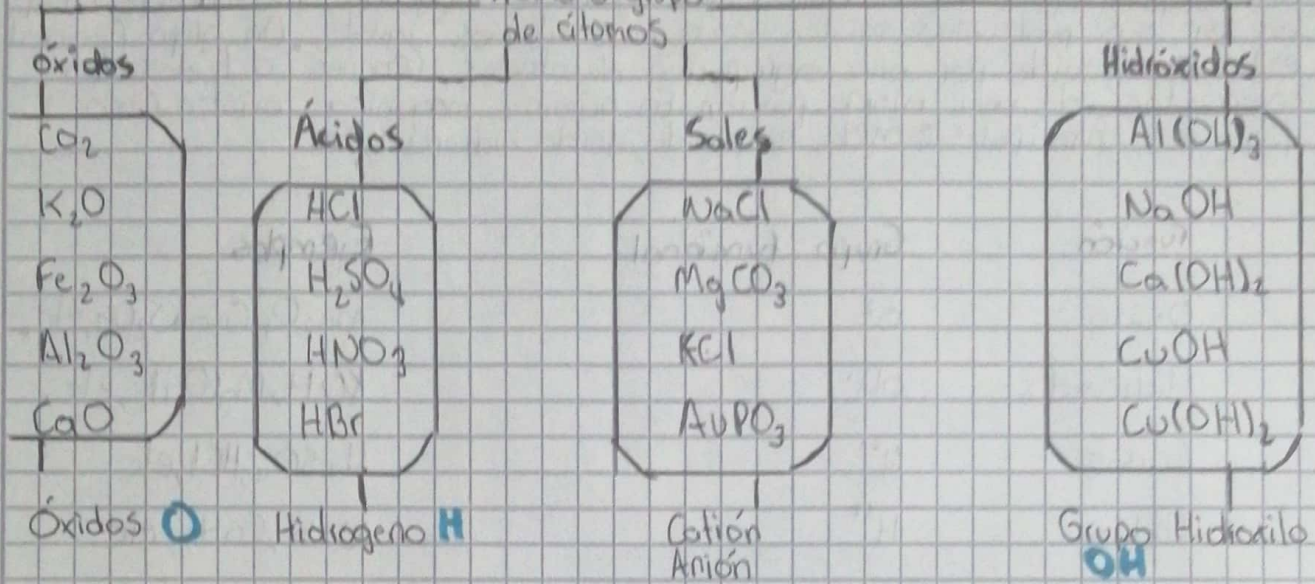 de átomos
óxidos
CO2
K2O
Fe2O3
Al2O3
CaO
Óxidos O
Ácidos
HCl
H2SO4
HNO3
HBr
Hidrogeno H
Sales
NaCl
MgCO3
KCl
AuPO3
Catión
Anión
Hidróxidos
Al(OH)3
NaOH
Ca(OH)2
CuOH
Cu(OH)2
Grupo Hidroxilo
OH